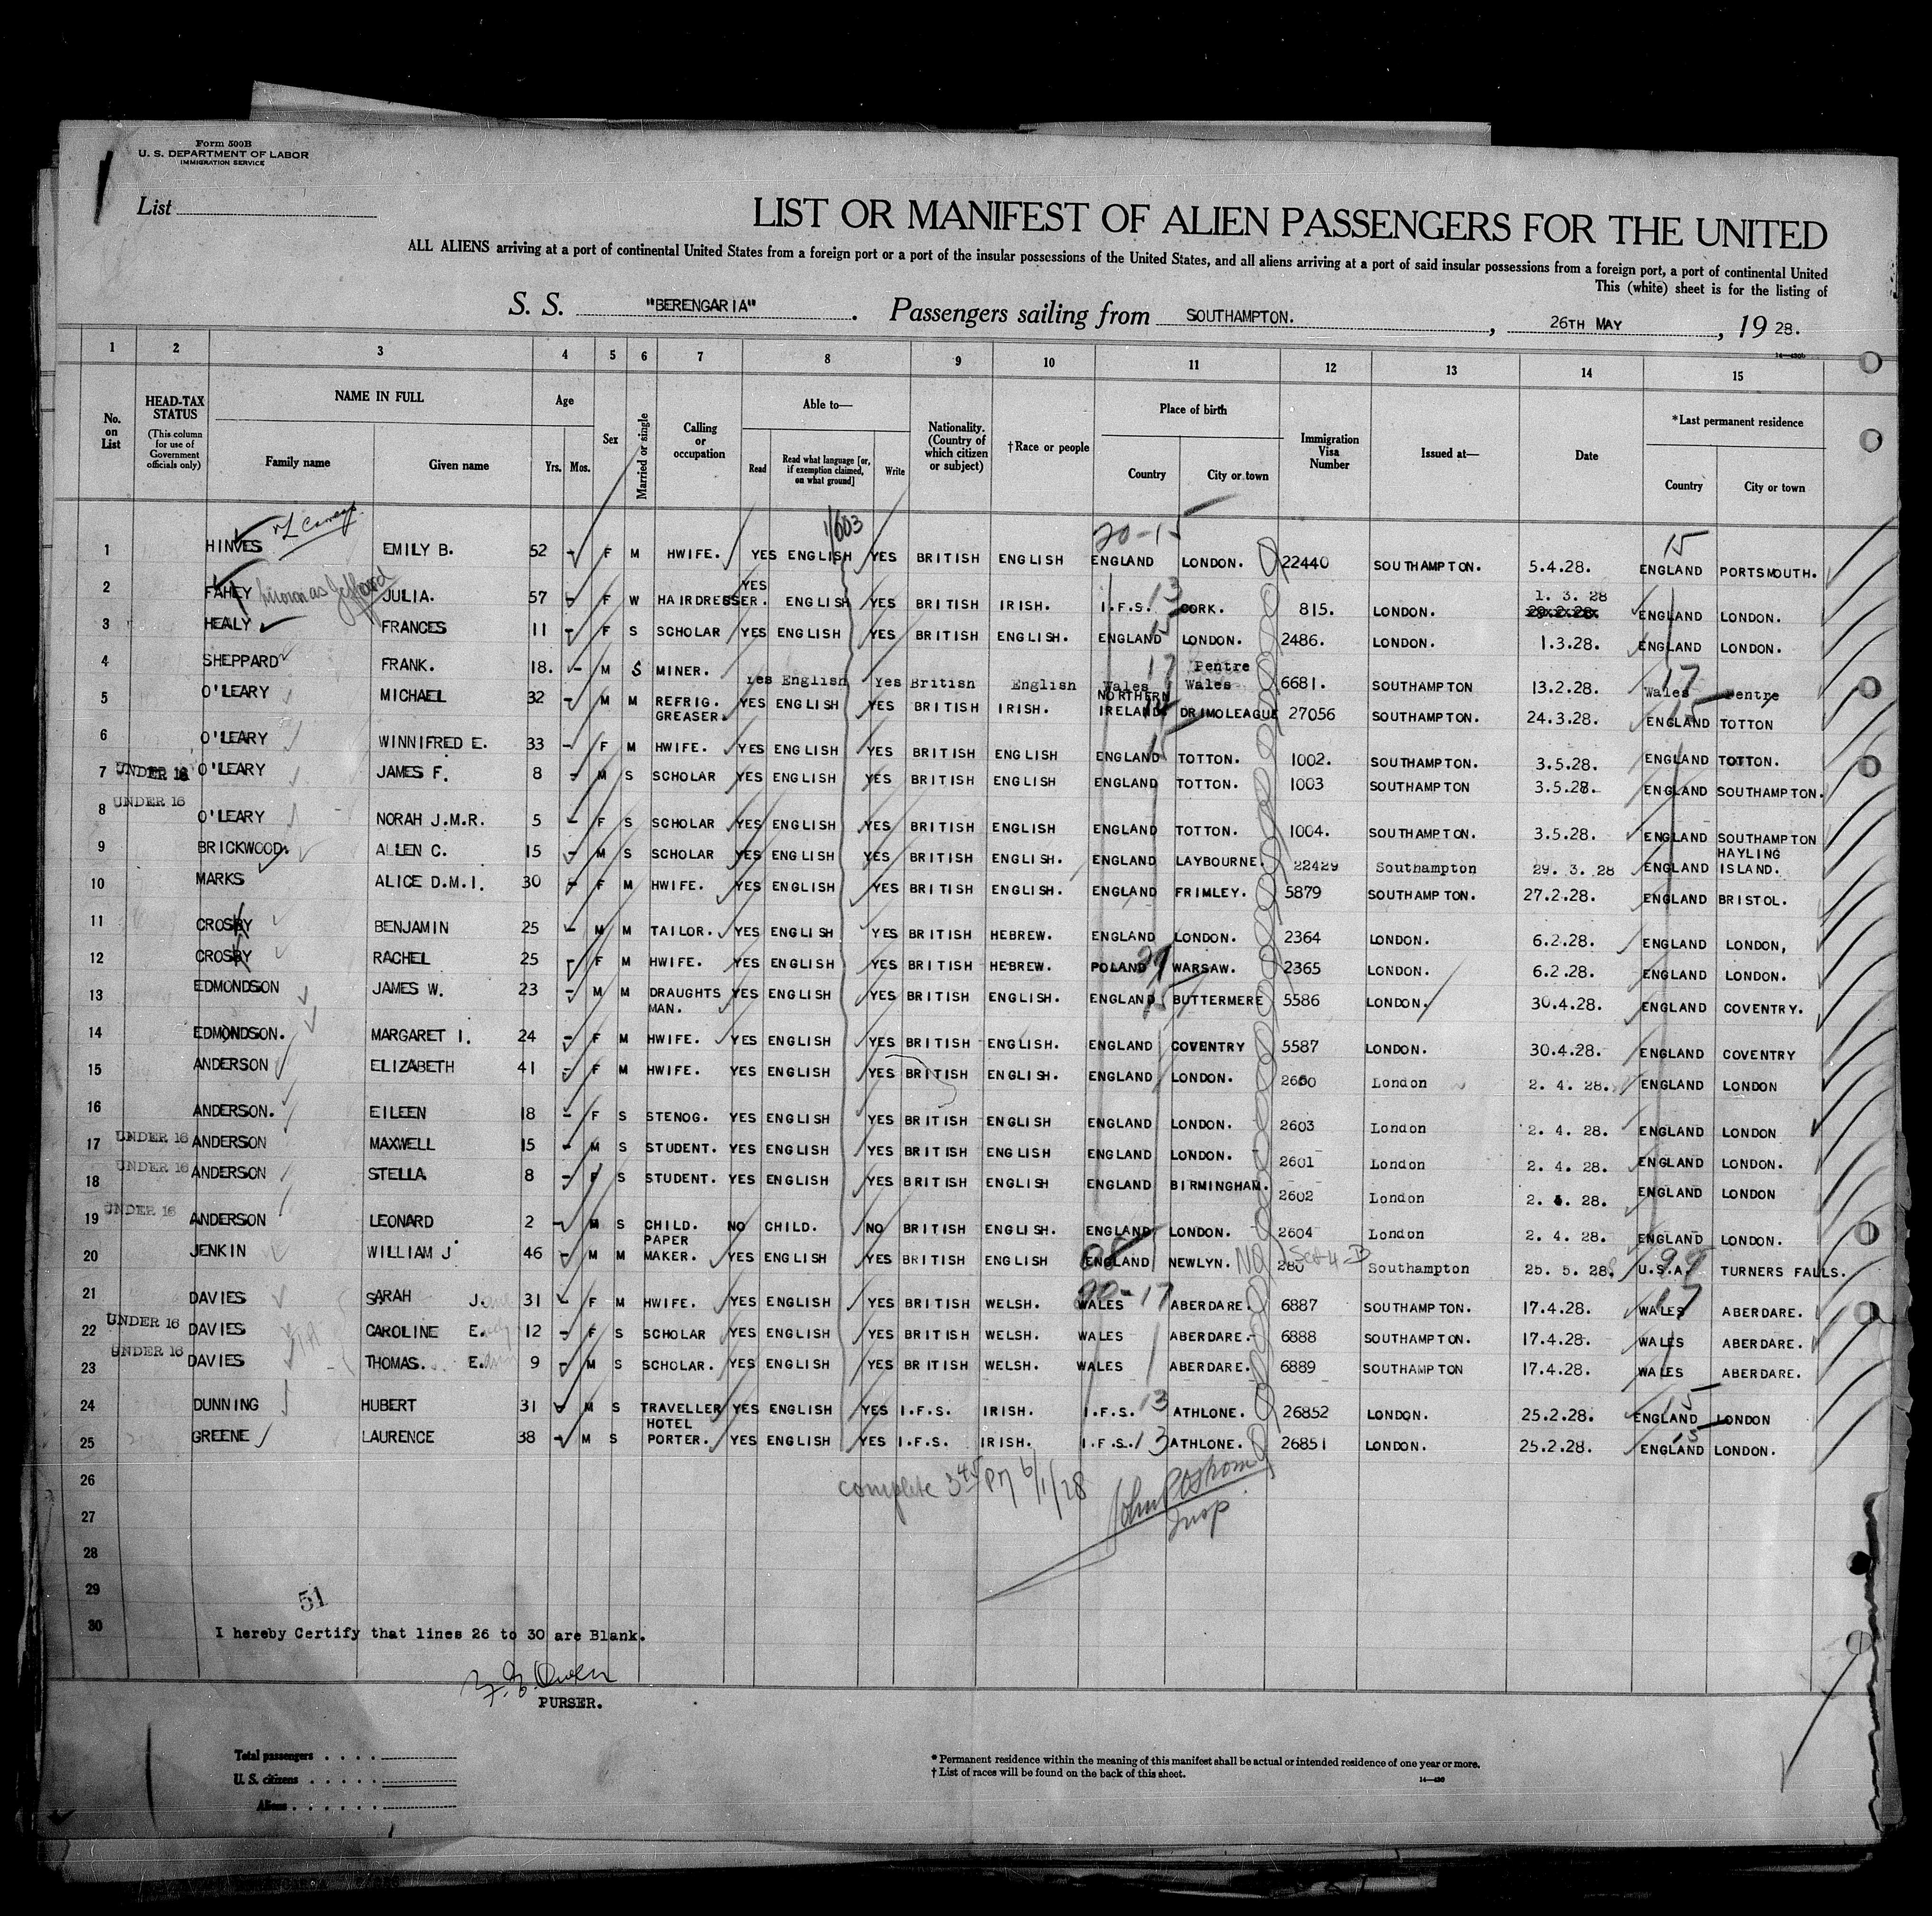 Form 500B
U. S. DEPARTMENT OF LABOR
IMMIGRATION SERVICE
List
LIST OR MANIFEST OF ALIEN PASSENGERS FOR THE UNITED
ALL ALIENS arriving at a port of continental United States from a foreign port or a port of the insular possessions of the United States, and all aliens arriving at a port of said insular possessions from a foreign port, a port of continental United
This (white) sheet is for the listing of
S. S. "BERENGARIA". Passengers sailing from SOUTHAMPTON., 26TH MAY, 19 28.
1 2 3 4 5 6 7 8 9 10 11 12 13 14 15
No. on List
HEAD-TAX STATUS
(This column for use of Government officials only)
NAME IN FULL
Family name Given name
Age
Yrs. Mos.
Sex
Married or single
Calling or occupation
Able to—
Read Read what language [or, if exemption claimed, on what ground] Write
Nationality. (Country of which citizen or subject)
†Race or people
Place of birth
Country City or town
Immigration Visa Number
Issued at—
Date
*Last permanent residence
Country City or town
1/603 20-15 15
1 HINVES EMILY B. 52 - F M HWIFE. YES ENGLISH YES BRITISH ENGLISH ENGLAND LONDON. 22440 SOUTHAMPTON. 5.4.28. ENGLAND PORTSMOUTH.
2 FAHEY known as JULIA. 57 - F W HAIRDRESSER. YES ENGLISH YES BRITISH IRISH. I.F.S. 13 CORK. 815. LONDON. 1. 3. 28 ENGLAND LONDON.
3 HEALY FRANCES 11 - F S SCHOLAR YES ENGLISH YES BRITISH ENGLISH. ENGLAND 15 LONDON. 2486. LONDON. 1.3.28. ENGLAND LONDON.
4 SHEPPARD FRANK. 18. - M S MINER. Yes English Yes British English Wales 17 Pentre Wales 6681. SOUTHAMPTON 13.2.28. Wales 17 Pentre
5 O'LEARY MICHAEL 32 - M M REFRIG. GREASER. YES ENGLISH YES BRITISH IRISH. NORTHERN IRELAND DRIMOLEAGUE 27056 SOUTHAMPTON. 24.3.28. ENGLAND 15 TOTTON
6 O'LEARY WINNIFRED E. 33 - F M HWIFE. YES ENGLISH YES BRITISH ENGLISH ENGLAND 15 TOTTON. 1002. SOUTHAMPTON. 3.5.28. ENGLAND TOTTON.
7 UNDER 16 O'LEARY JAMES F. 8 - M S SCHOLAR YES ENGLISH YES BRITISH ENGLISH ENGLAND TOTTON. 1003 SOUTHAMPTON 3.5.28. ENGLAND SOUTHAMPTON.
8 UNDER 16 O'LEARY NORAH J.M.R. 5 - F S SCHOLAR YES ENGLISH YES BRITISH ENGLISH ENGLAND TOTTON. 1004. SOUTHAMPTON. 3.5.28. ENGLAND SOUTHAMPTON
9 BRICKWOOD. ALLEN C. 15 - M S SCHOLAR YES ENGLISH YES BRITISH ENGLISH. ENGLAND LAYBOURNE. 22429 Southampton 29. 3. 28 ENGLAND HAYLING ISLAND.
10 MARKS ALICE D.M.I. 30 - F M HWIFE. YES ENGLISH YES BRITISH ENGLISH. ENGLAND FRIMLEY. 5879 SOUTHAMPTON. 27.2.28. ENGLAND BRISTOL.
11 CROSBY BENJAMIN 25 - M M TAILOR. YES ENGLISH YES BRITISH HEBREW. ENGLAND LONDON. 2364 LONDON. 6.2.28. ENGLAND LONDON,
12 CROSBY RACHEL 25 - F M HWIFE. YES ENGLISH YES BRITISH HEBREW. POLAND WARSAW. 2365 LONDON. 6.2.28. ENGLAND LONDON.
13 EDMONDSON JAMES W. 23 - M M DRAUGHTS MAN. YES ENGLISH YES BRITISH ENGLISH. ENGLAND 15 BUTTERMERE 5586 LONDON. 30.4.28. ENGLAND COVENTRY.
14 EDMONDSON. MARGARET I. 24 - F M HWIFE. YES ENGLISH YES BRITISH ENGLISH. ENGLAND COVENTRY 5587 LONDON. 30.4.28. ENGLAND COVENTRY
15 ANDERSON ELIZABETH 41 - F M HWIFE. YES ENGLISH YES BRITISH ENGLISH. ENGLAND LONDON. 2600 London 2. 4. 28. ENGLAND LONDON
16 ANDERSON. EILEEN 18 - F S STENOG. YES ENGLISH YES BRITISH ENGLISH ENGLAND LONDON. 2603 London 2. 4. 28. ENGLAND LONDON
17 UNDER 16 ANDERSON MAXWELL 15 - M S STUDENT. YES ENGLISH YES BRITISH ENGLISH ENGLAND LONDON. 2601 London 2. 4. 28. ENGLAND LONDON.
18 UNDER 16 ANDERSON STELLA 8 - F S STUDENT. YES ENGLISH YES BRITISH ENGLISH ENGLAND BIRMINGHAM. 2602 London 2. 4. 28. ENGLAND LONDON
19 UNDER 16 ANDERSON LEONARD 2 - M S CHILD. NO CHILD. NO BRITISH ENGLISH. ENGLAND LONDON. 2604 London 2. 4. 28. ENGLAND LONDON.
20 JENKIN WILLIAM J 46 - M M PAPER MAKER. YES ENGLISH YES BRITISH ENGLISH ENGLAND NEWLYN. NQ Sec 4-B 280 Southampton 25. 5. 28. U.S.A. 99 TURNERS FALLS.
21 DAVIES SARAH Jane 31 - F M HWIFE. YES ENGLISH YES BRITISH WELSH. WALES 20-17 ABERDARE. 6887 SOUTHAMPTON. 17.4.28. WALES 17 ABERDARE.
22 UNDER 16 DAVIES CAROLINE E. 12 - F S SCHOLAR YES ENGLISH YES BRITISH WELSH. WALES ABERDARE. 6888 SOUTHAMPTON. 17.4.28. WALES ABERDARE.
23 UNDER 16 DAVIES THOMAS. E. 9 - M S SCHOLAR. YES ENGLISH YES BRITISH WELSH. WALES ABERDARE. 6889 SOUTHAMPTON 17.4.28. WALES ABERDARE.
24 DUNNING HUBERT 31 - M S TRAVELLER YES ENGLISH YES I.F.S. IRISH. I.F.S. 13 ATHLONE. 26852 LONDON. 25.2.28. ENGLAND 15 LONDON
25 GREENE LAURENCE 38 - M S HOTEL PORTER. YES ENGLISH YES I.F.S. IRISH. I.F.S. 13 ATHLONE. 26851 LONDON. 25.2.28. ENGLAND 15 LONDON.
26 complete 3 45 PM 6/1/28 John
27 Insp
28
29
51
30 I hereby Certify that lines 26 to 30 are Blank.
Owen
PURSER.
Total passengers . . . .
U. S. citizens . . . . .
Aliens . . . . . .
* Permanent residence within the meaning of this manifest shall be actual or intended residence of one year or more.
† List of races will be found on the back of this sheet.
14—430